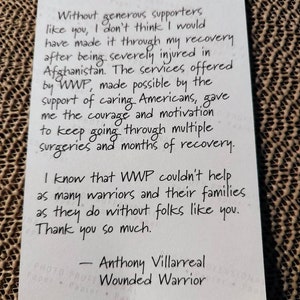 Without generous supporters
like you, I don't think I would
have made it through my recovery
after being severely injured in
Afghanistan. The services offered
by WWP, made possible by the
support of caring Americans, gave
me the courage and motivation
to keep going through multiple
surgeries and months of recovery.
I know that WWP couldn't help
as many warriors and their families
as they do without folks like you.
Thank you so much.
— Anthony Villarreal
Wounded Warrior